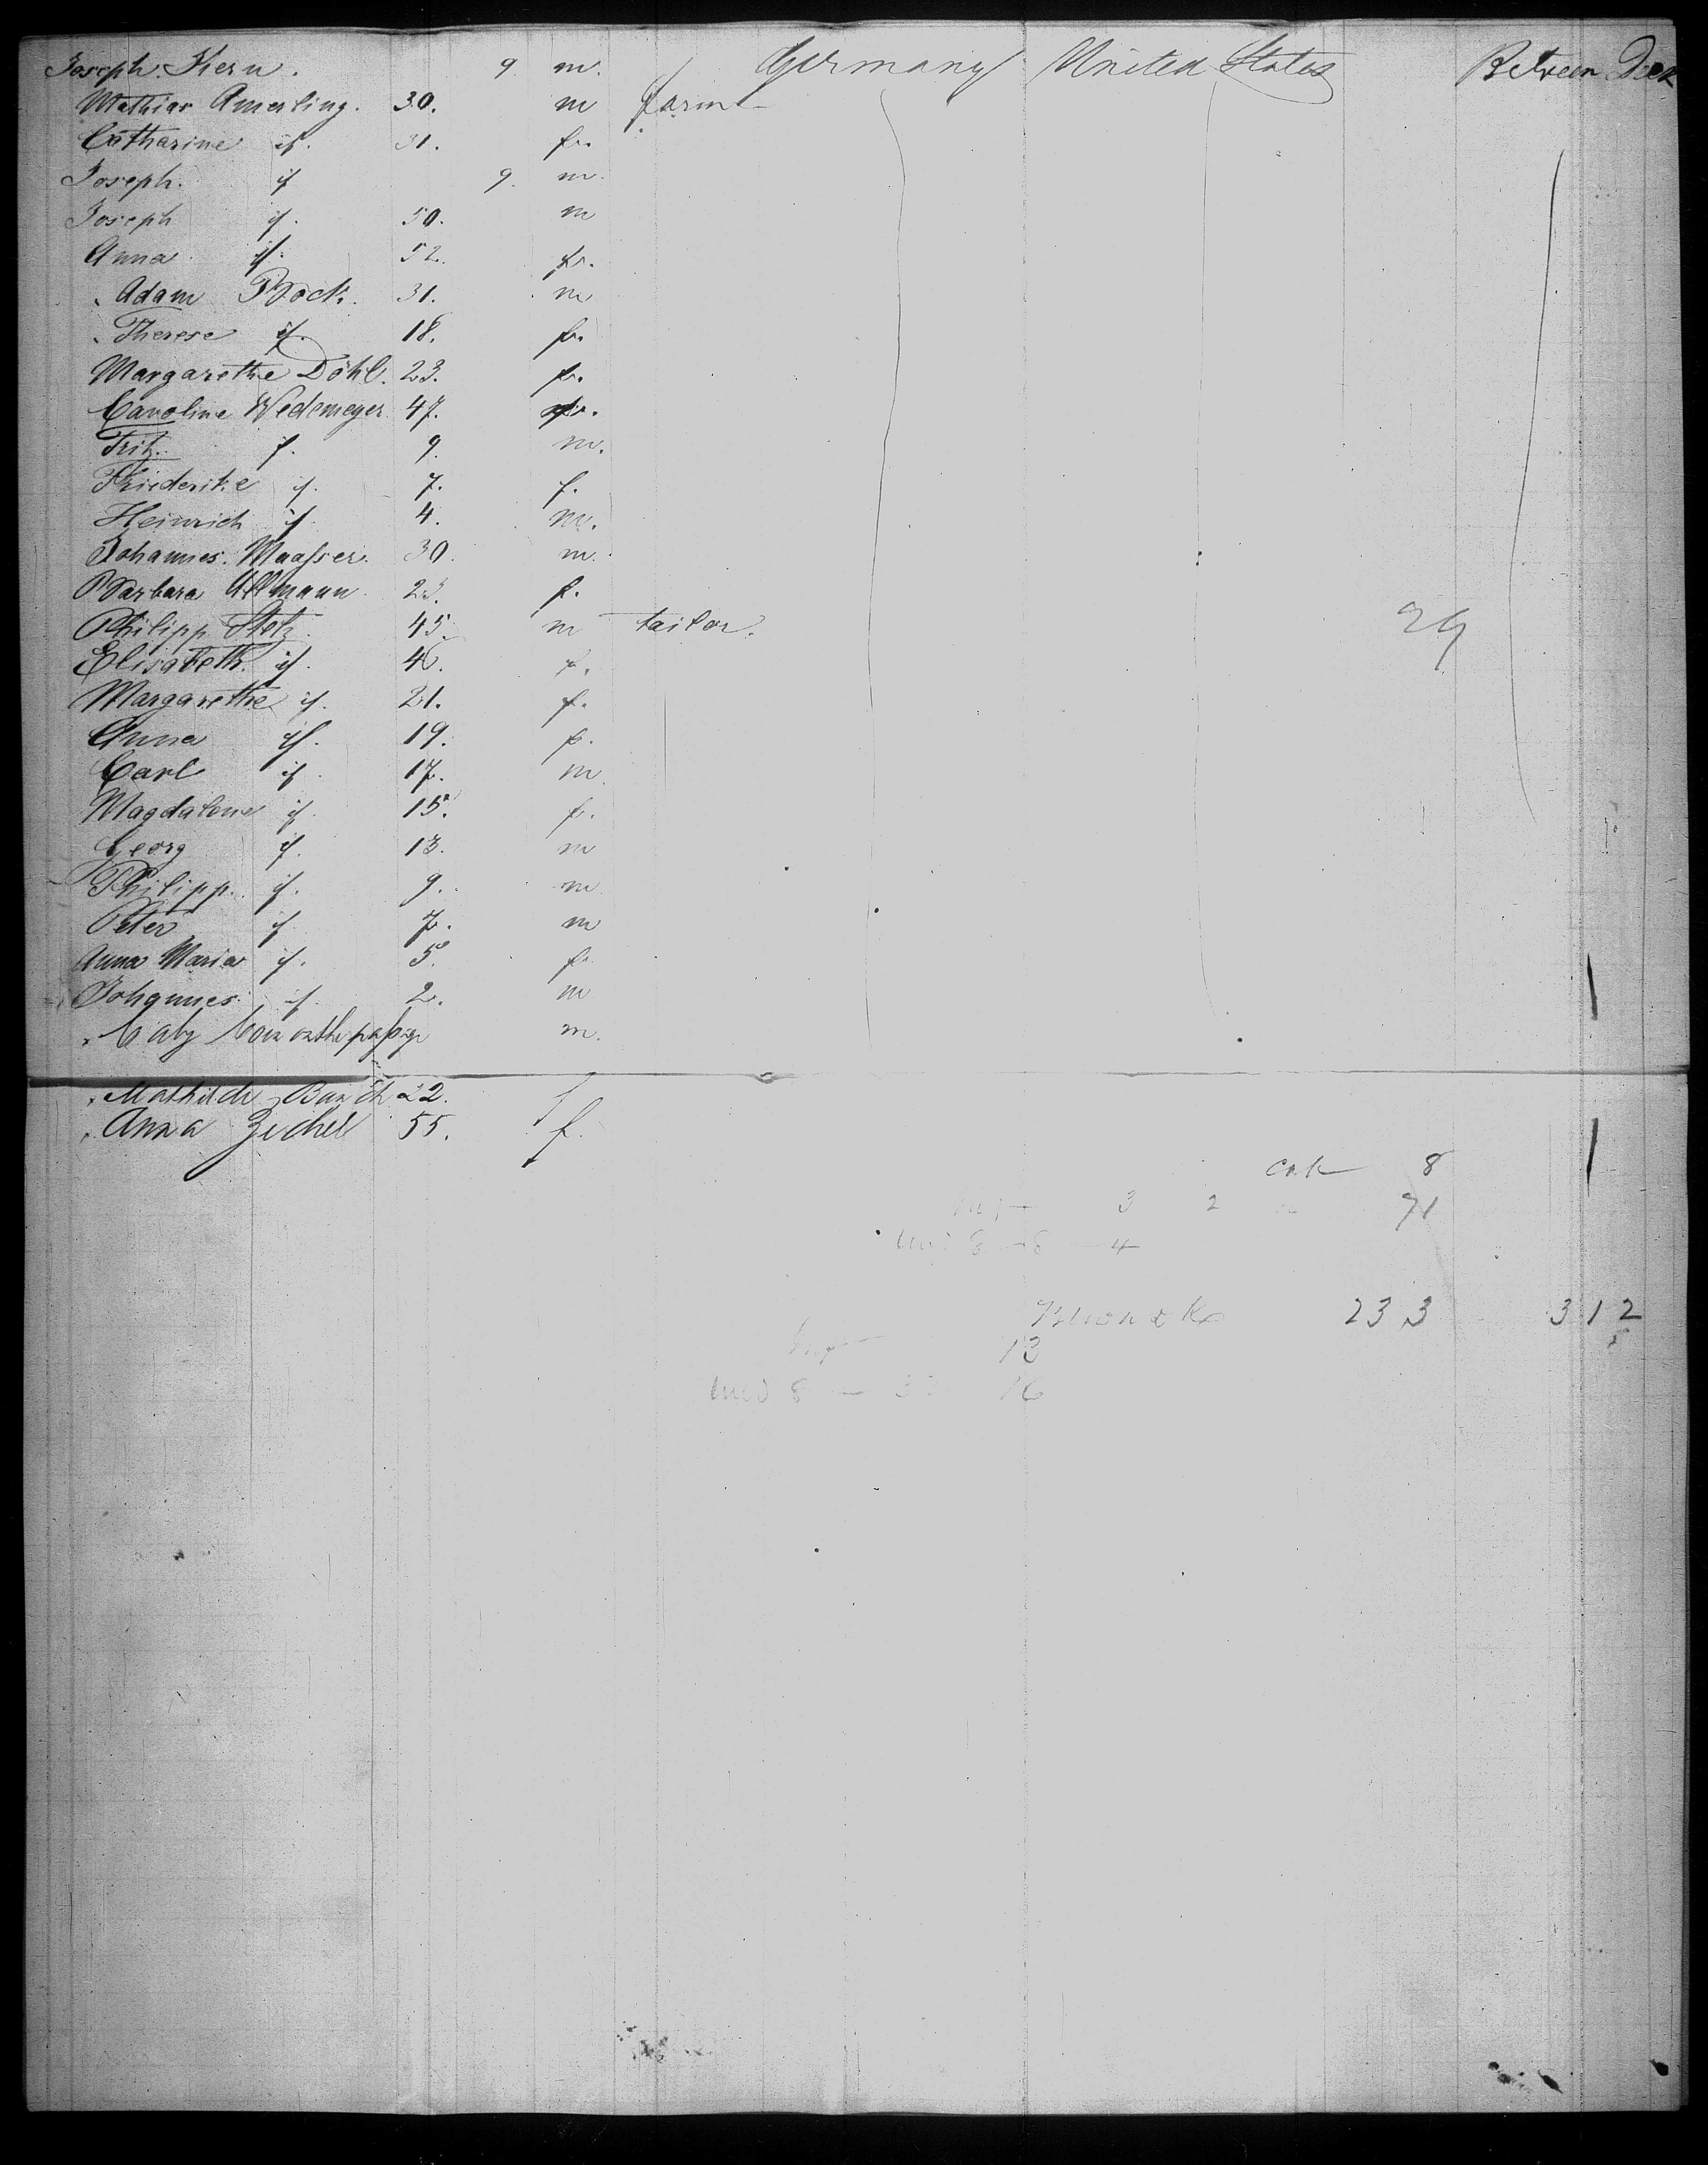 Joseph Kern. 9 m. Germany United States Between Deck
Mathias Amerling. 30. m farm
Catharine if. 31. f.
Joseph. if 9. m.
Joseph if. 50. m
Anna if. 52. f.
Adam Böck. 31. m
Therese if. 18. f.
Margarethe Döhl. 23. f.
Caroline Wedemeyer 47. f.
Fritz. if. 9. m.
Friederike if. 7. f.
Heinrich if. 4. m.
Johannes. Maaßer. 30. m.
Barbara Ullmann 23. f.
Philipp Stotz. 45. m tailor. 29
Elisabeth. if. 46. f.
Margarethe if. 21. f.
Anna if. 19. f.
Carl if. 17. m
Magdalene if. 15. f.
Georg if. 13. m
Philipp. if. 9. m
Peter if. 7. m
Anna Maria if. 5. f.
Johannes if. 2. m
Baby born on the paßage m.
Mathilde 22. f
Anna Zichel 55. f.
Cab 8
3 2 71
8 4
233 312
13
8 16